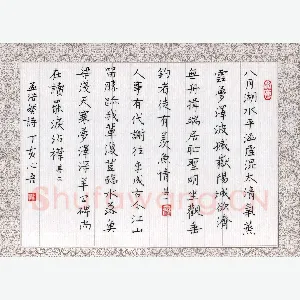 八月湖水平涵虛混太清氣蒸
雲夢澤波撼嶽陽城欲濟
無舟楫端居恥聖明坐觀垂
釣者徒有羨魚情其一
人事有代謝往來成古今江山
留勝跡我輩復登臨水落魚
梁淺天寒夢澤深羊公碑尚
在讀罷淚沾襟其二
孟浩然詩丁亥
Shufawang.CN